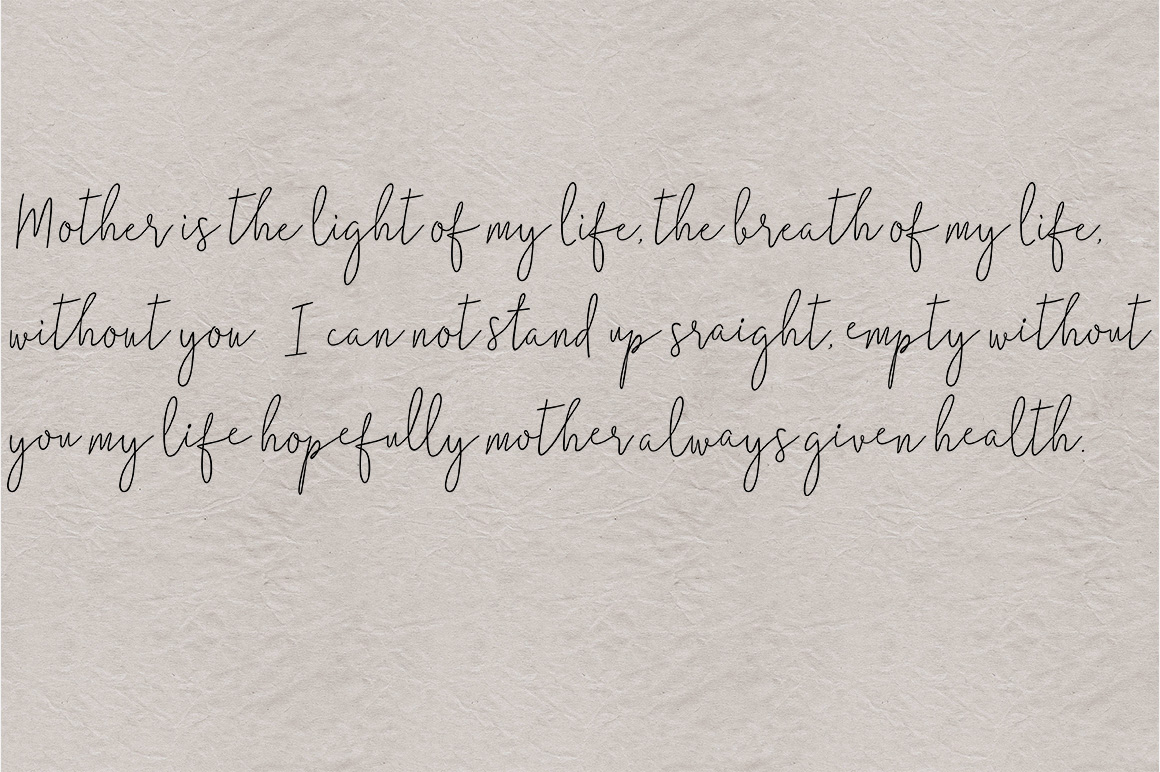 Mother is the light of my life, the breath of my life,
without you I can not stand up sraight, empty without
you my life hopefully mother always given health.